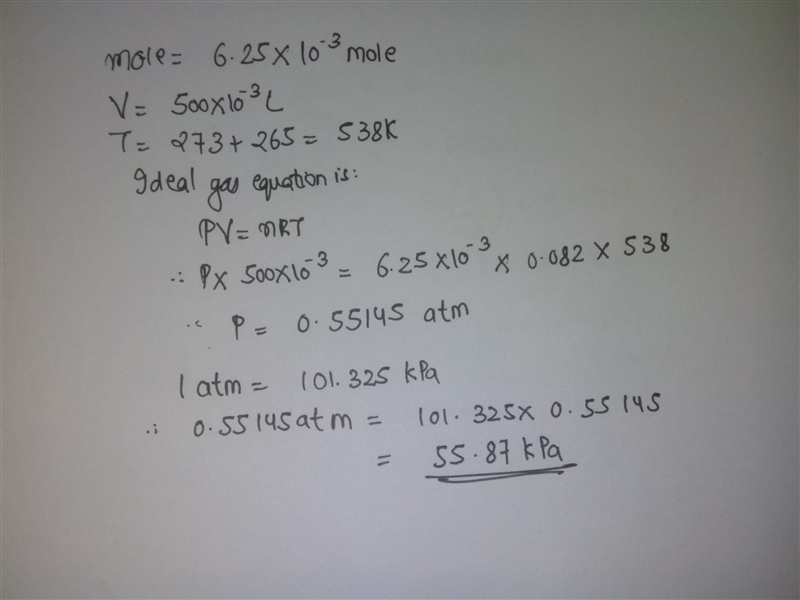 mole = 6.25 × 10⁻³ mole
V = 500×10⁻³ L
T = 273 + 265 = 538K
Ideal gas equation is:
PV = nRT
∴ P× 500×10⁻³ = 6.25 ×10⁻³ × 0.082 × 538
∴ P = 0.55145 atm
1 atm = 101.325 kPa
∴ 0.55145 atm = 101.325× 0.55145
= 55.87 kPa